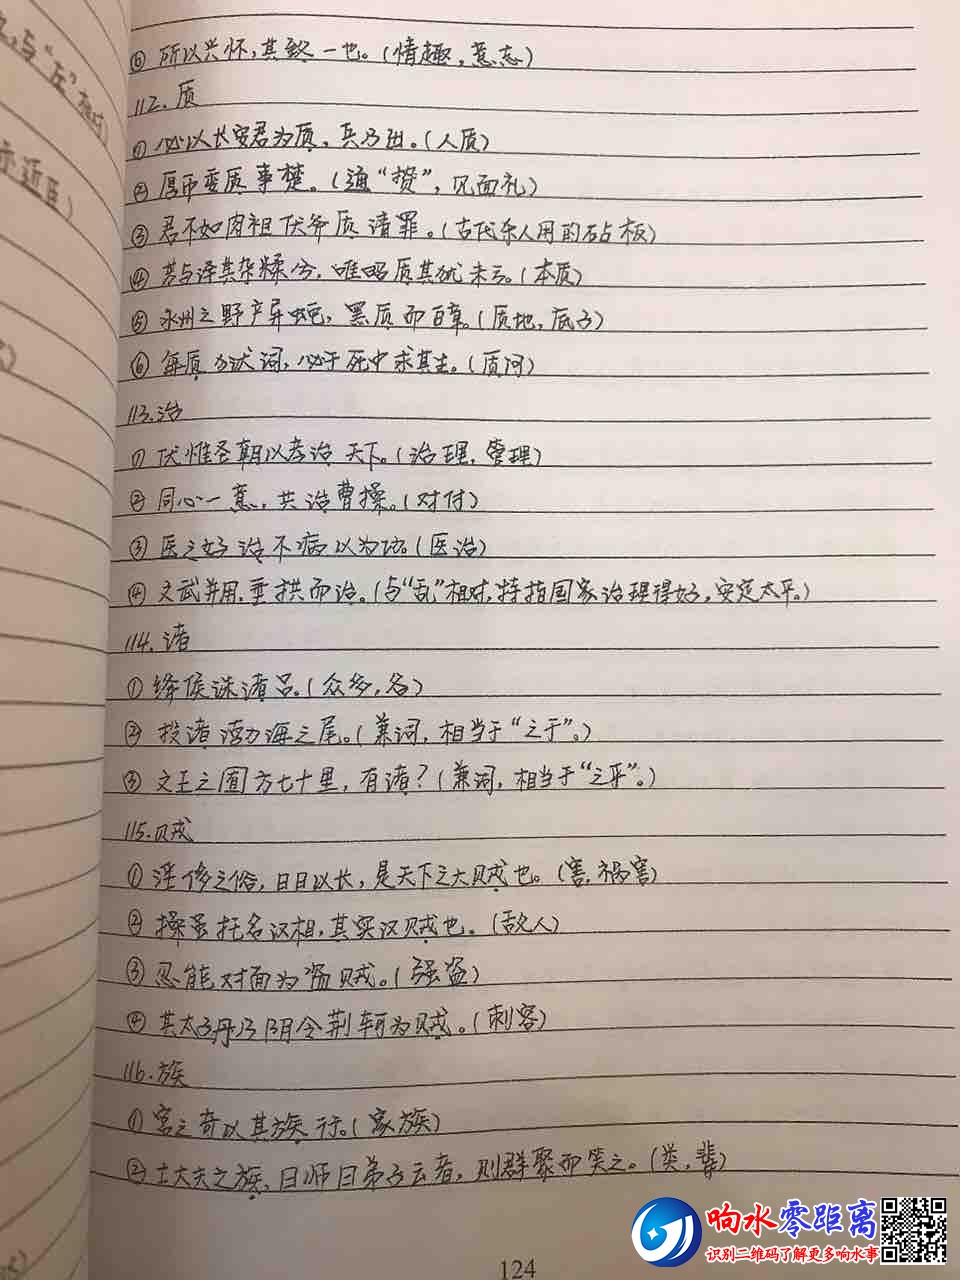 与“左”相对)
示近臣)
⑥ 所以兴怀,其致一也。(情趣,意志)
112.质
① 必以长安君为质,兵乃出。(人质)
② 厚币委质事楚。(通“贽”,见面礼)
③ 君不如肉袒伏斧质请罪。(古代杀人用的砧板)
④ 芳与泽其杂糅兮,唯昭质其犹未亏。(本质)
⑤ 永州之野产异蛇,黑质而白章。(质地,底子)
⑥ 每质为试词,必于死中求其生。(质问)
113.治
① 伏惟圣朝以孝治天下。(治理,管理)
② 同心一意,共治曹操。(对付)
③ 医之好治不病以为功。(医治)
④ 文武并用,垂拱而治。(与“乱”相对,特指国家治理得好,安定太平。)
114.诸
① 绛侯诛诸吕。(众多,各)
② 投诸渤海之尾。(兼词,相当于“之于”。)
③ 文王之囿方七十里,有诸?(兼词,相当于“之乎”。)
115.贼
① 淫侈之俗,日日以长,是天下之大贼也。(害,祸害)
② 操虽托名汉相,其实汉贼也。(敌人)
③ 忍能对面为盗贼。(强盗)
④ 其太子丹乃阴令荆轲为贼。(刺客)
116.族
① 宫之奇以其族行。(家族)
② 士大夫之族,曰师曰弟子云者,则群聚而笑之。(类,辈)
124
响水零距离
识别二维码了解更多响水事